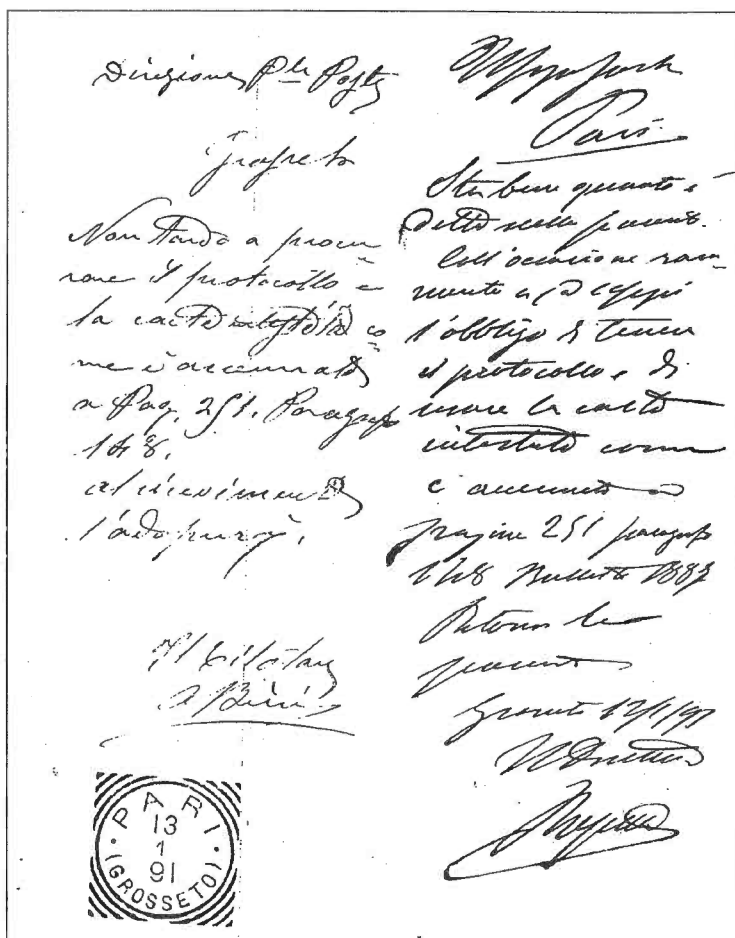 Direzione Ple Poste
Grosseto
Non tardo a procu
rare il protocollo e
la carta intestata co
me è accennato
a Pag. 251. Paragrafo
148.
al ricevimento
l'adopererò.
Il Titolare
Pari
Sta bene quanto è
detto nella present.
Coll'occasione ram
mento a
l'obbligo di tenere
il protocollo e di
usare la carta
intestata come
è accennato a
pagine 251 paragrafo
148 Bullett 1887
Ritorni la
presente
Grosseto 12/1/91
Il Direttore
PARI
13
1
91
(GROSSETO)